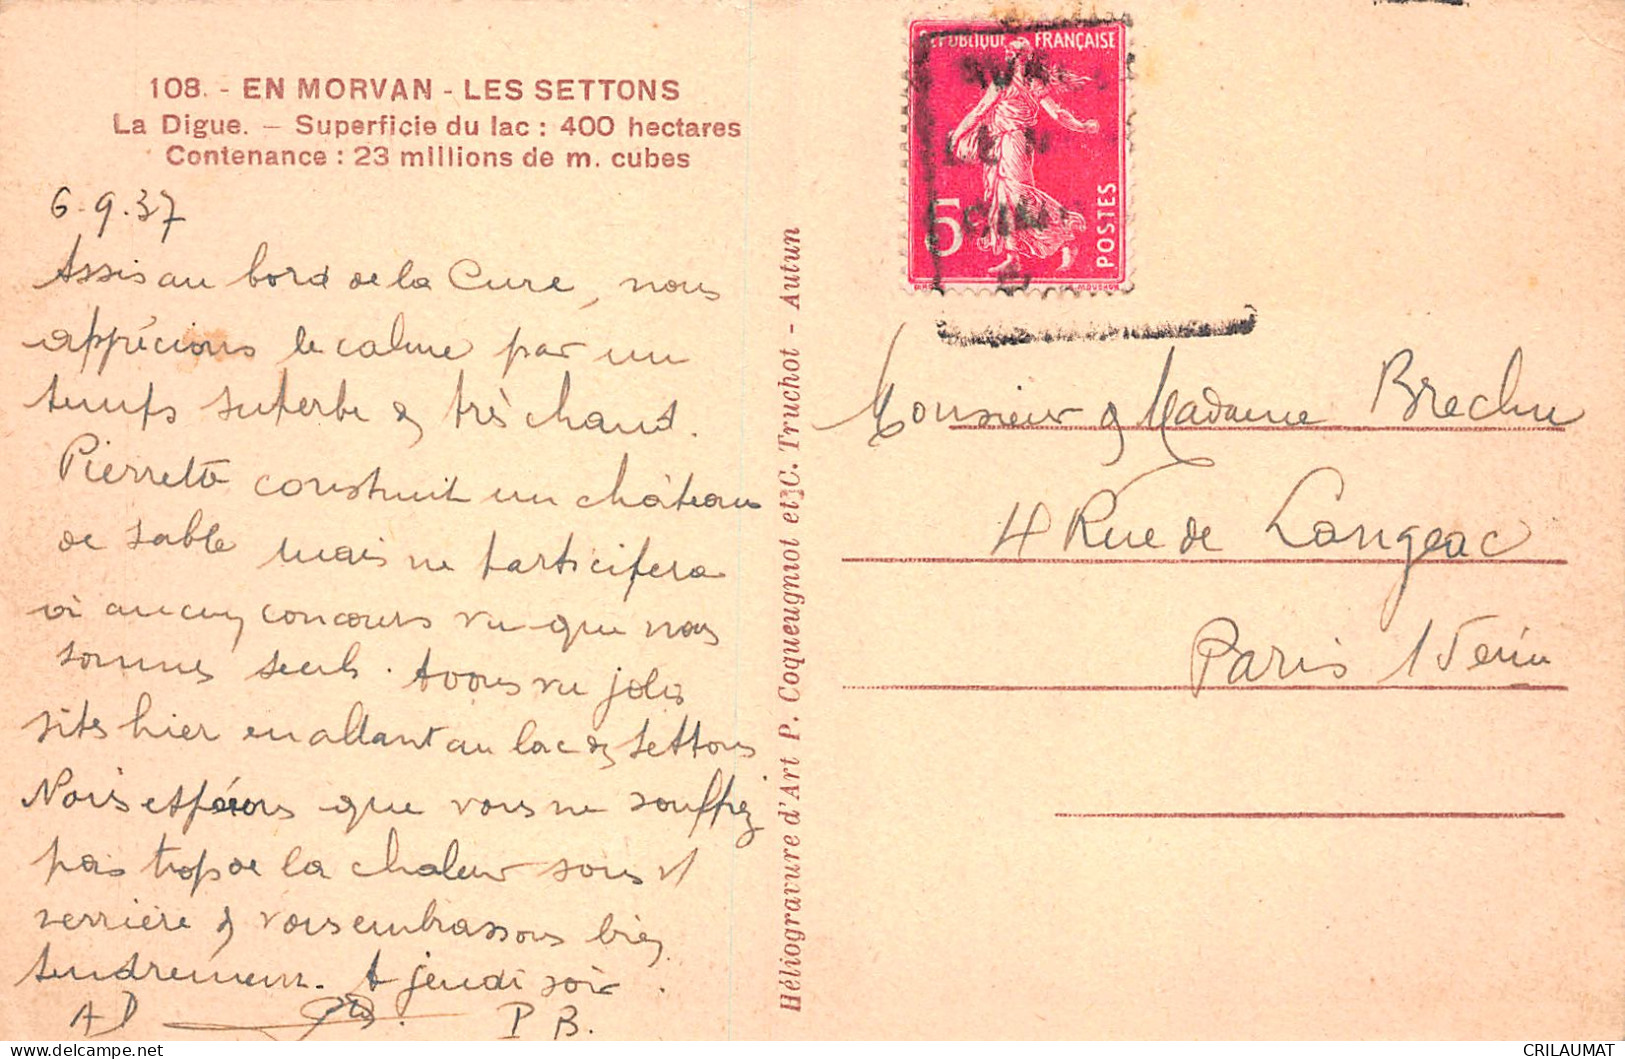 108. - EN MORVAN - LES SETTONS
La Digue. — Superficie du lac : 400 hectares
Contenance : 23 millions de m. cubes
6.9.37
Assis au bord de la Cure, nous
apprécions le calme par un
temps superbe & très chaud.
Pierrette construit un château
de sable mais ne participera
ni aucun concours vu que nous
sommes seuls. Avons vu jolis
sites hier en allant au lac des Settons
Nous espérons que vous ne souffrez
pas trop de la chaleur sous
verrière & vous embrassons bien
tendrement. A jeudi soir.
AD PB.
Héliogravure d'Art P. Coqueugniot et C. Truchot - Autun
RÉPUBLIQUE FRANÇAISE
5
POSTES
Monsieur & Madame Brechu
4 Rue de Langeac
Paris 15eme
CRILAUMAT